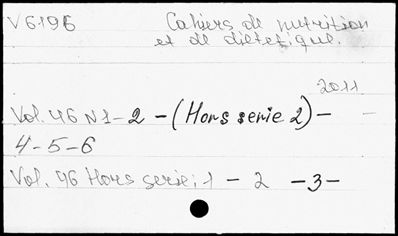 V6196 Cahiers de nutrition
et de dietetique.
2011
Vol. 46 N1-2-(Hors serie 2)- -
4-5-6
Vol. 46 Hors serie: 1 - 2 -3-